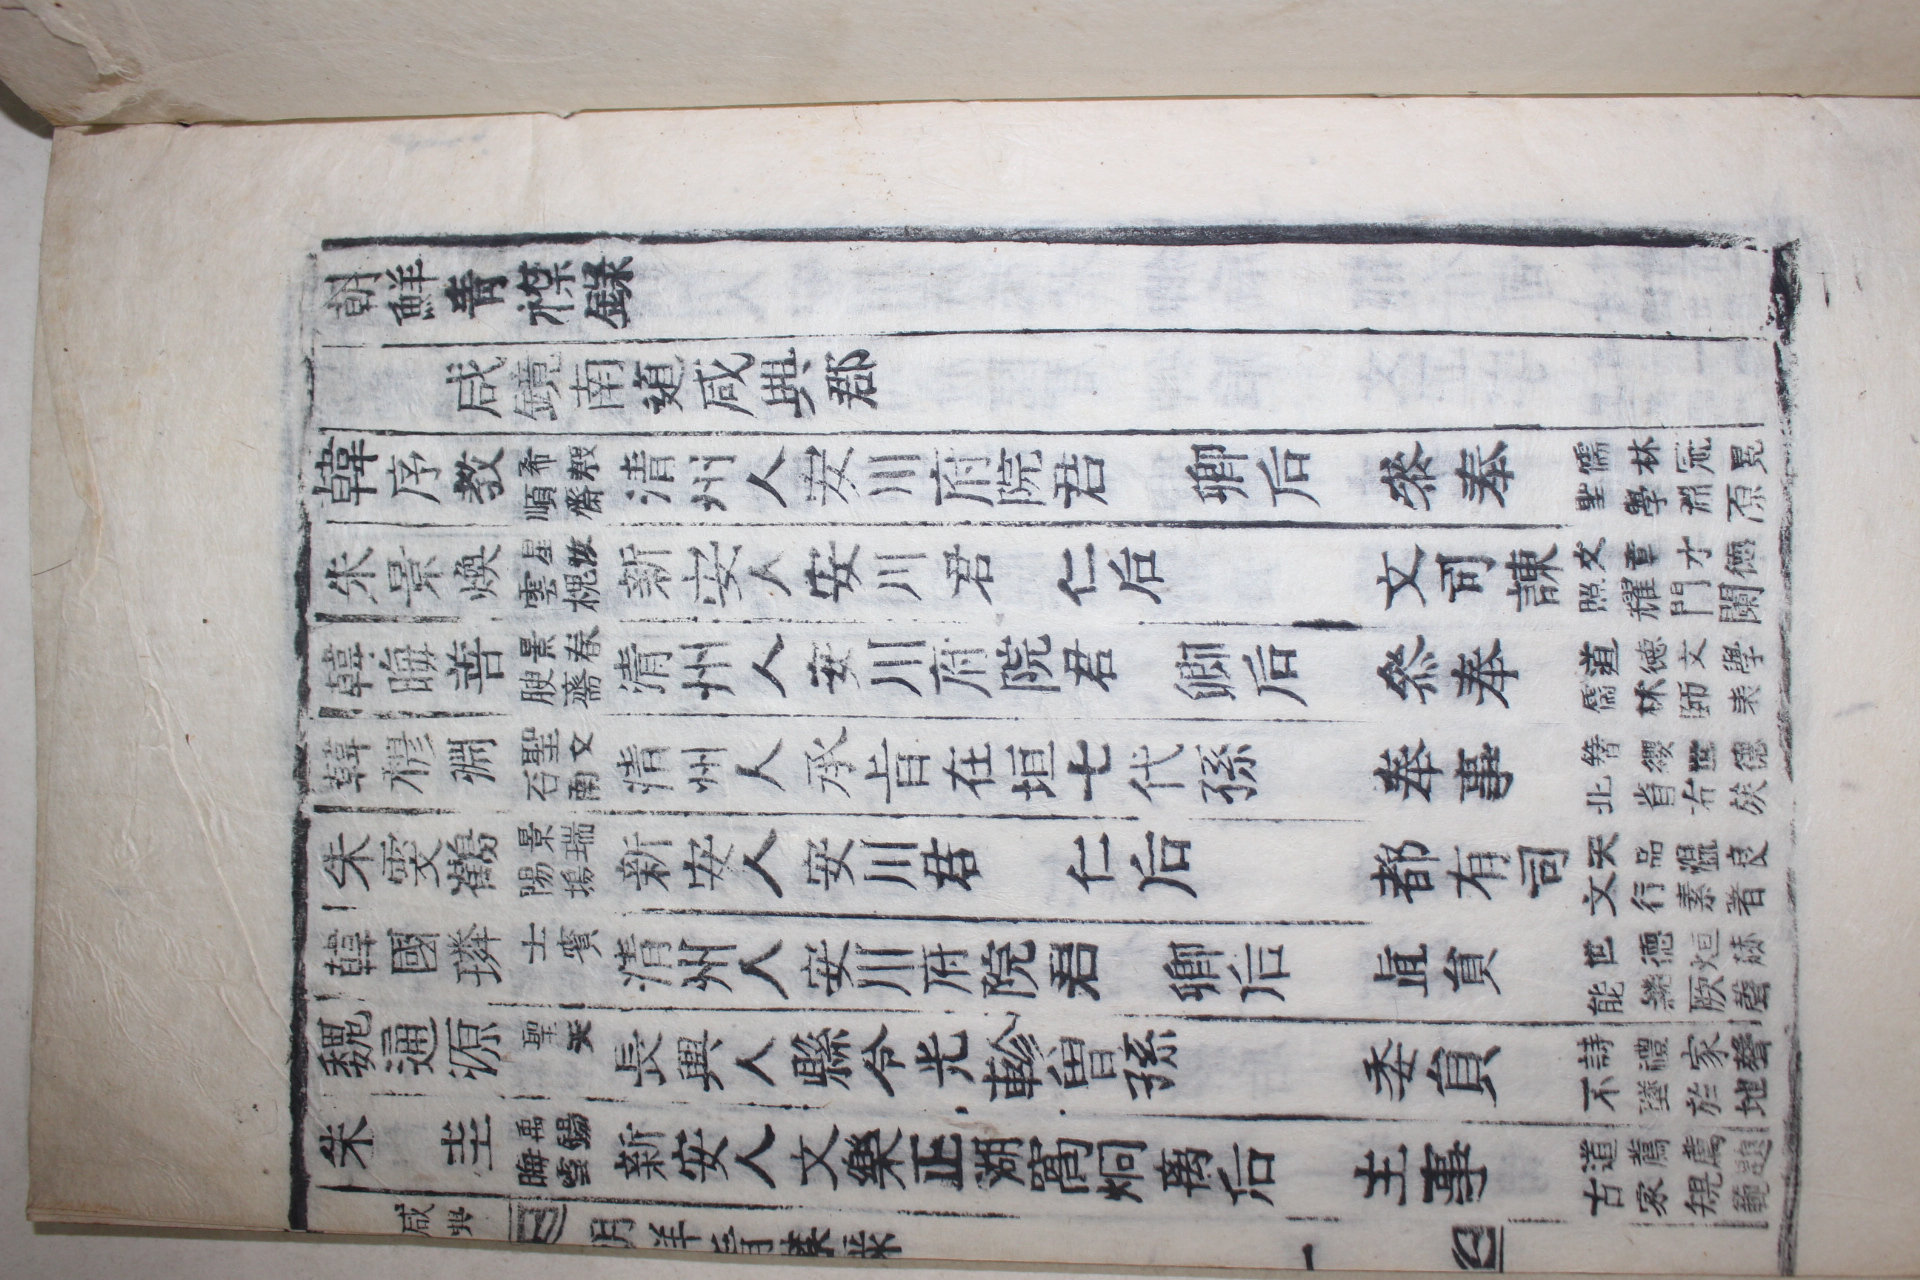 朝鮮青襟錄
咸鏡南道咸興郡
韓序教 希殷 順齋 清州人安川府院君 卿后 參奉 儒林冠冕 聖學淵原
朱景煥 星汝 雲槐 新安人安川君 仁后 文司諫 文章才德 照耀門闌
韓晦善 景春 腴齋 清州人安川府院君 卿后 叅奉 道德文學 儒林師表
韓穆淵 聖文 石南 清州人承旨在垣七代孫 奉事 簪纓世德 北省右族
朱雯鶴 景瑞 陽塢 新安人安川君 仁后 都有司 天品溫良 文行素著
韓國璘 士賓 清州人安川府院君 卿后 直員 世德烜赫 能繞厥聲
魏通源 聖天 長興人縣令光軫曾孫 委員 詩禮家聲 不墜於地
朱 圭 禹錫 晦雲 新安人文樂正湖窩炯离后 主事 道薦薦題 古家規範
咸興 朝鮮青襟錄 一